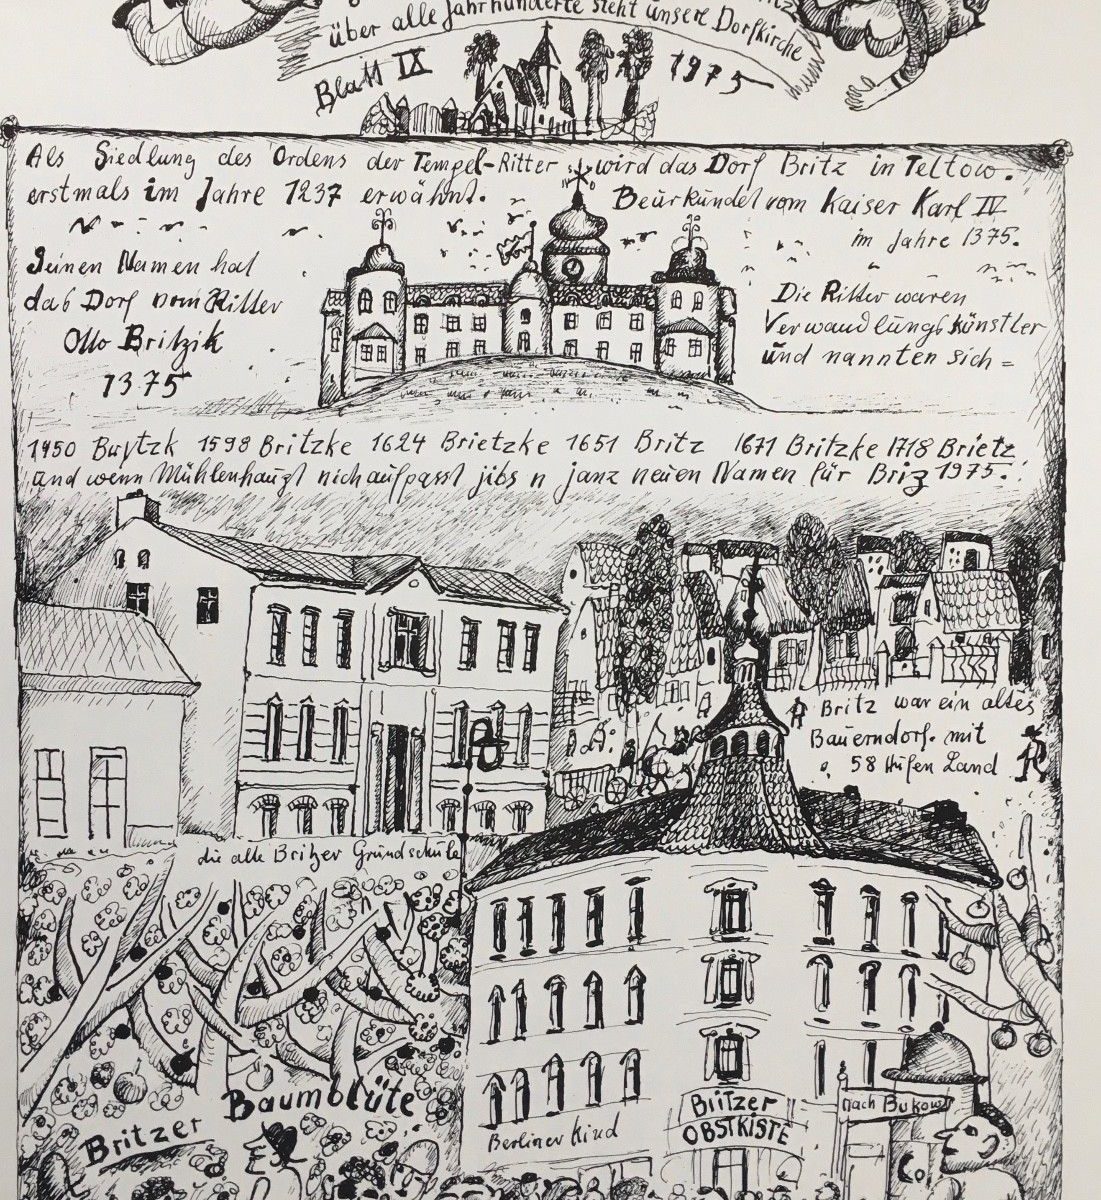 über alle Jahrhunderte steht unsere Dorfkirche
Blatt IX 1975
Als Siedlung des Ordens der Tempel-Ritter wird das Dorf Britz in Teltow.
erstmals im Jahre 1237 erwähnt. Beurkundet vom Kaiser Karl IV
im Jahre 1375.
Seinen Namen hat
das Dorf vom Ritter
Otto Britzik
1375
Die Ritter waren
Verwandlungskünstler
und nannten sich =
1450 Brytzk 1598 Britzke 1624 Brietzke 1651 Britz 1671 Britzke 1718 Brietz
und wenn Mühlenhaupt nich aufpasst jibs n janz neuen Namen für Briz 1975.
Britz war ein altes
Bauerndorf. mit
58 Hufen Land
die alte Britzer Grundschule
Britzer Baumblüte
Berliner Kind
Britzer
OBSTKISTE
nach Bukow